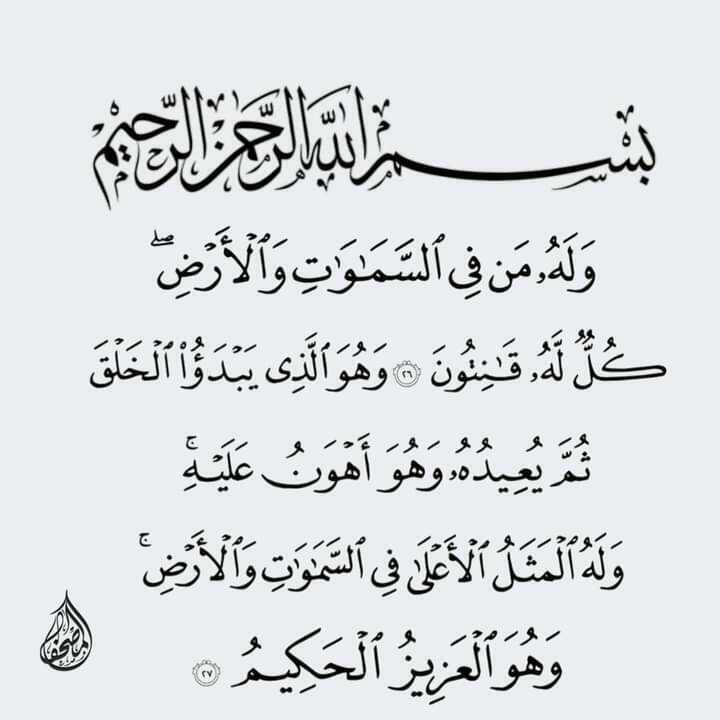 بِسْمِ اللَّهِ الرَّحْمَٰنِ الرَّحِيمِ
وَلَهُۥ مَن فِى ٱلسَّمَـٰوَٰتِ وَٱلْأَرْضِ ۖ
كُلٌّ لَّهُۥ قَـٰنِتُونَ ٢٦ وَهُوَ ٱلَّذِى يَبْدَؤُا۟ ٱلْخَلْقَ
ثُمَّ يُعِيدُهُۥ وَهُوَ أَهْوَنُ عَلَيْهِ ۚ
وَلَهُ ٱلْمَثَلُ ٱلْأَعْلَىٰ فِى ٱلسَّمَـٰوَٰتِ وَٱلْأَرْضِ ۚ
وَهُوَ ٱلْعَزِيزُ ٱلْحَكِيمُ ٢٧